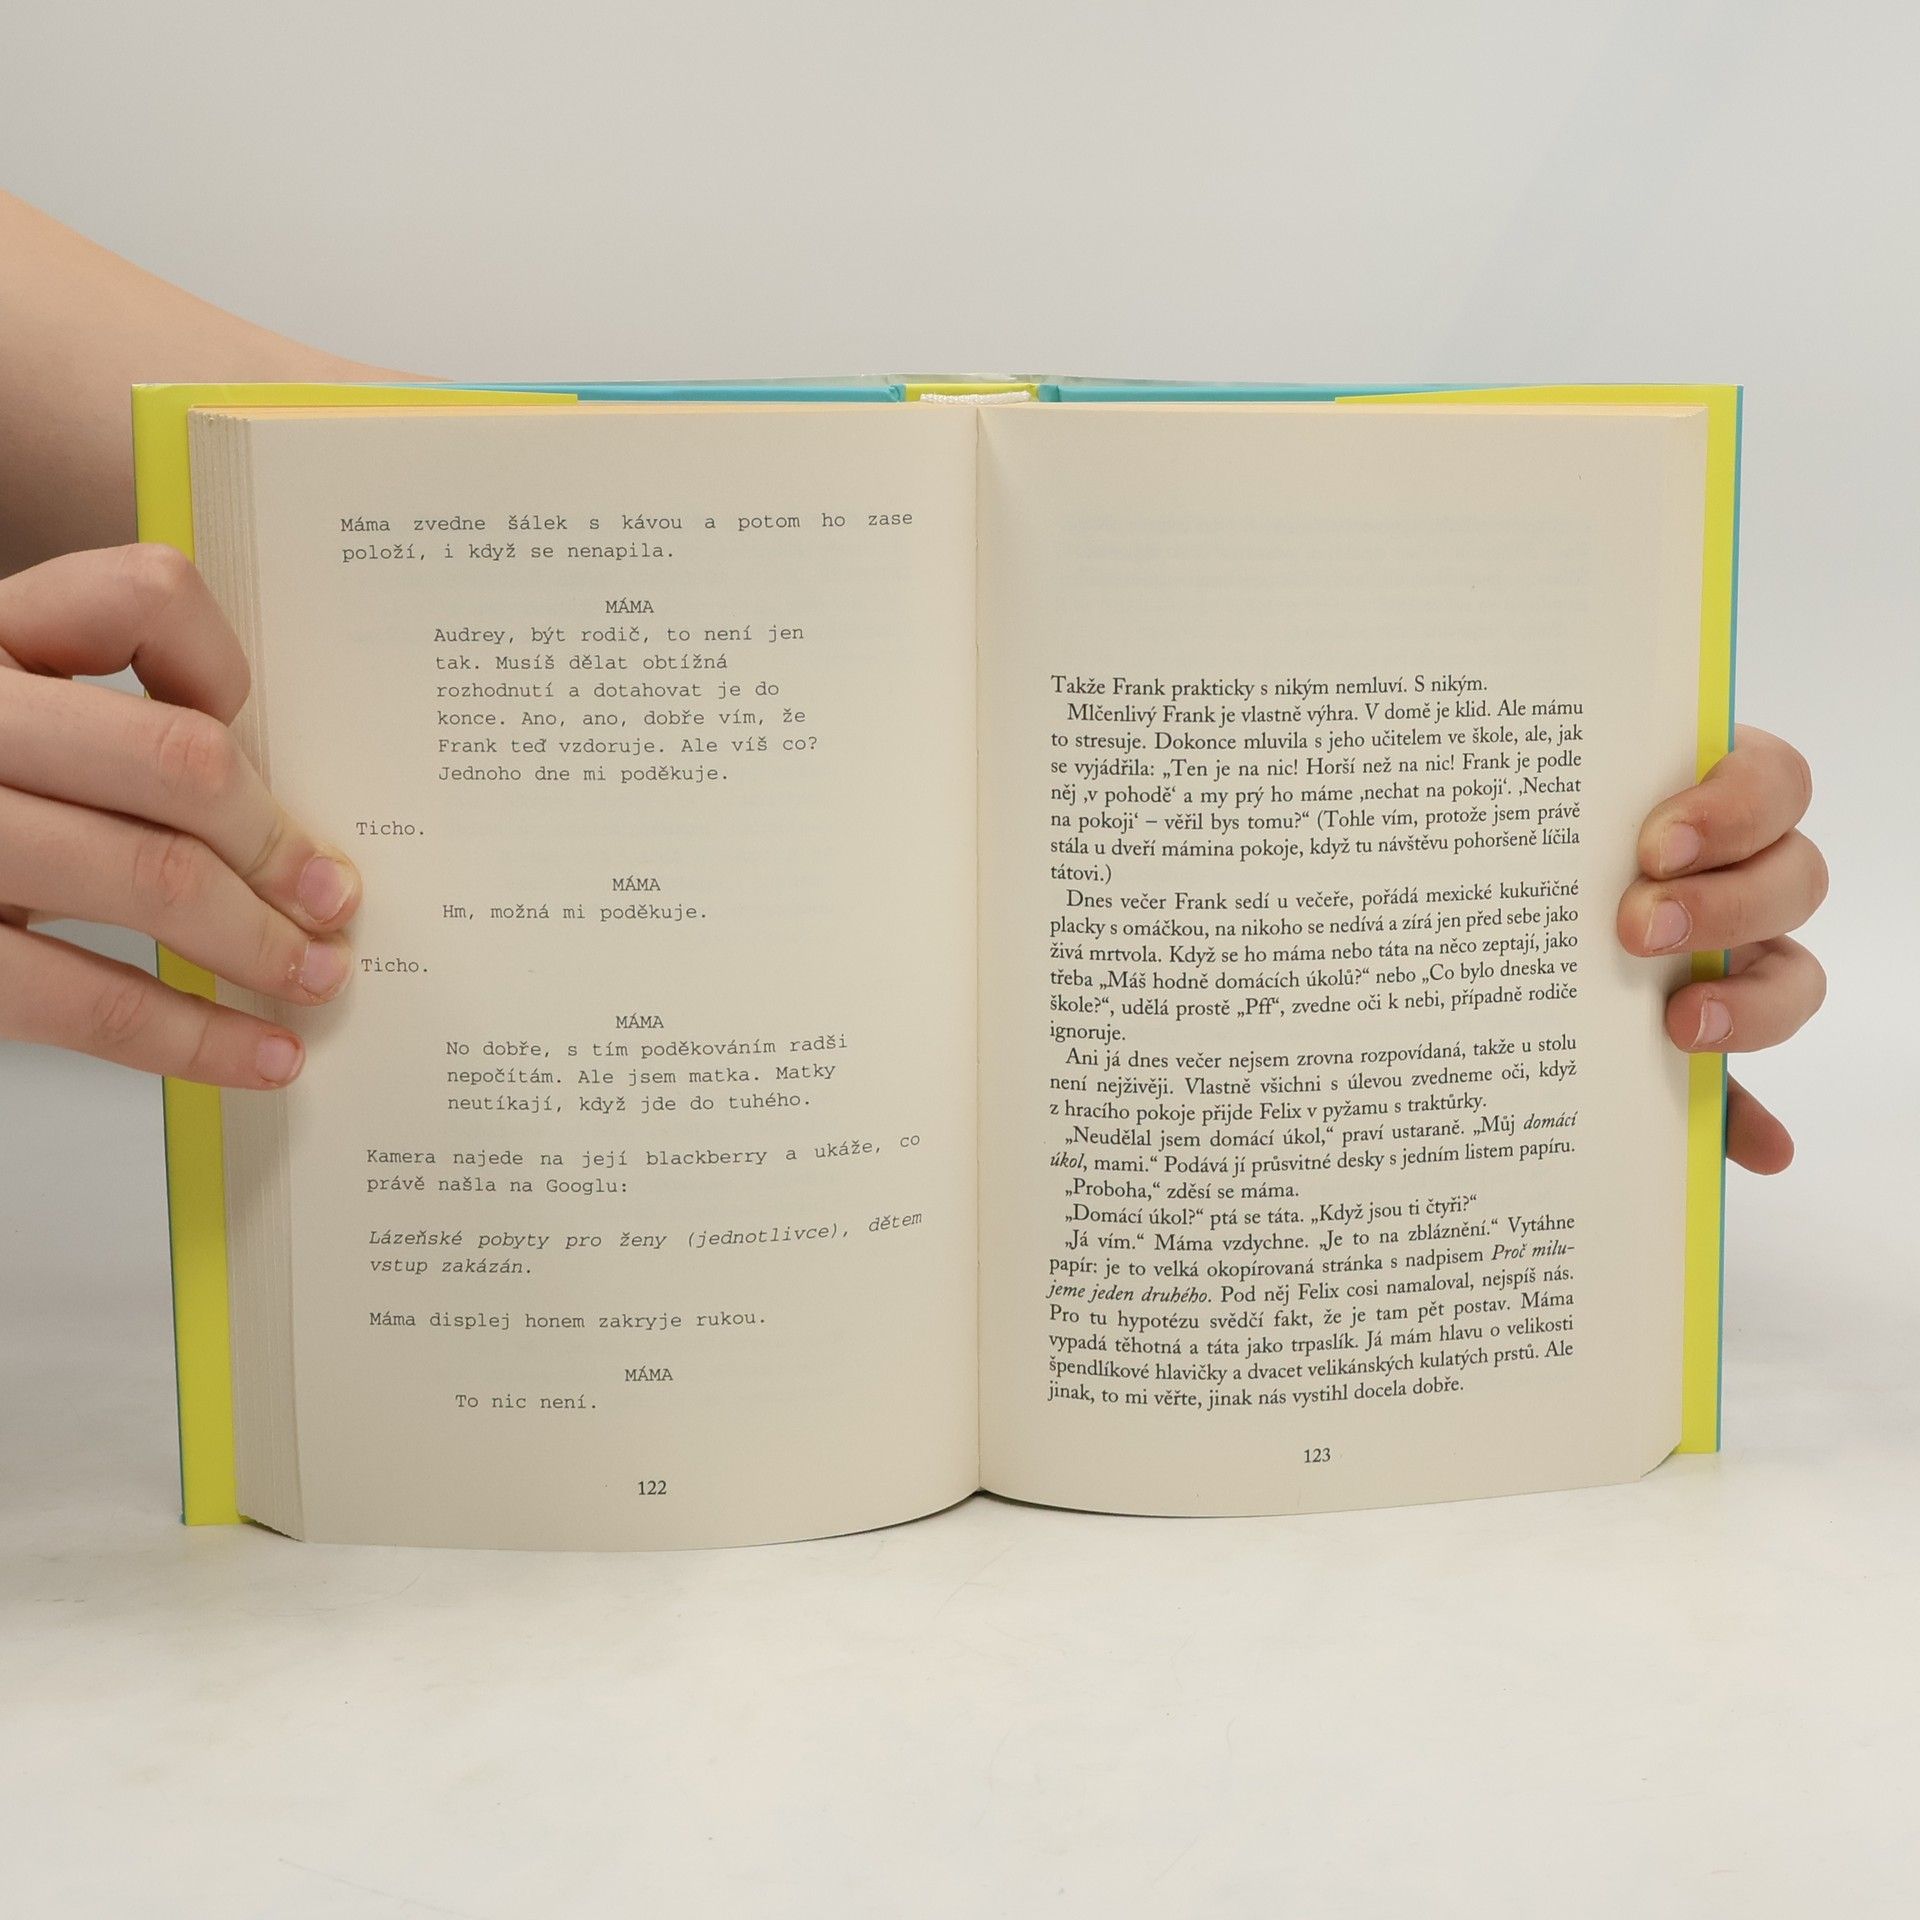 Máma zvedne šálek s kávou a potom ho zase
položí, i když se nenapila.
MÁMA
Audrey, být rodič, to není jen
tak. Musíš dělat obtížná
rozhodnutí a dotahovat je do
konce. Ano, ano, dobře vím, že
Frank teď vzdoruje. Ale víš co?
Jednoho dne mi poděkuje.
Ticho.
MÁMA
Hm, možná mi poděkuje.
Ticho.
MÁMA
No dobře, s tím poděkováním radši
nepočítám. Ale jsem matka. Matky
neutíkají, když jde do tuhého.
Kamera najede na její blackberry a ukáže, co
právě našla na Googlu:
Lázeňské pobyty pro ženy (jednotlivce), dětem
vstup zakázán.
Máma displej honem zakryje rukou.
MÁMA
To nic není.
122
Takže Frank prakticky s nikým nemluví. S nikým.
Mlčenlivý Frank je vlastně výhra. V domě je klid. Ale mámu
to stresuje. Dokonce mluvila s jeho učitelem ve škole, ale, jak
se vyjádřila: „Ten je na nic! Horší než na nic! Frank je podle
něj ‚v pohodě‘ a my prý ho máme ‚nechat na pokoji‘. ‚Nechat
na pokoji‘ – věřil bys tomu?“ (Tohle vím, protože jsem právě
stála u dveří mámina pokoje, když tu návštěvu pohoršeně líčila
tátovi.)
Dnes večer Frank sedí u večeře, pořádá mexické kukuřičné
placky s omáčkou, na nikoho se nedívá a zírá jen před sebe jako
živá mrtvola. Když se ho máma nebo táta na něco zeptají, jako
třeba „Máš hodně domácích úkolů?“ nebo „Co bylo dneska ve
škole?“, udělá prostě „Pff“, zvedne oči k nebi, případně rodiče
ignoruje.
Ani já dnes večer nejsem zrovna rozpovídaná, takže u stolu
není nejživěji. Vlastně všichni s úlevou zvedneme oči, když
z hracího pokoje přijde Felix v pyžamu s traktůrky.
„Neudělal jsem domácí úkol,“ praví ustaraně. „Můj domácí
úkol, mami.“ Podává jí průsvitné desky s jedním listem papíru.
„Proboha,“ zděsí se máma.
„Domácí úkol?“ ptá se táta. „Když jsou ti čtyři?“
„Já vím.“ Máma vzdychne. „Je to na zbláznění.“ Vytáhne
papír: je to velká okopírovaná stránka s nadpisem Proč milu-
jeme jeden druhého. Pod něj Felix cosi namaloval, nejspíš nás.
Pro tu hypotézu svědčí fakt, že je tam pět postav. Máma
vypadá těhotná a táta jako trpaslík. Já mám hlavu o velikosti
špendlíkové hlavičky a dvacet velikánských kulatých prstů. Ale
jinak, to mi věřte, jinak nás vystihl docela dobře.
123